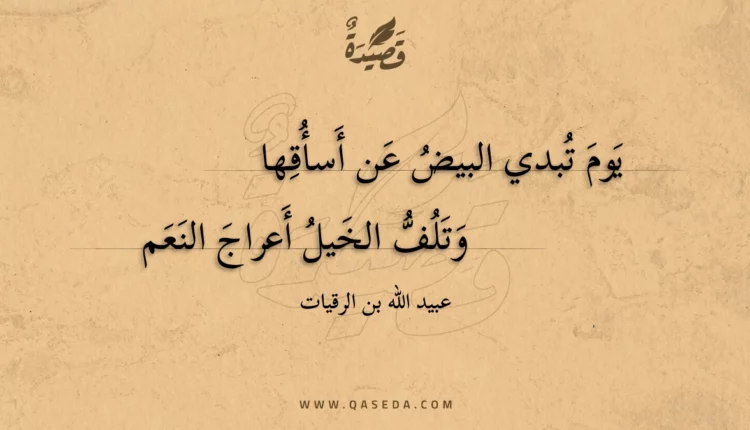 قَصِيدَةٌ
يَومَ تُبدي البيضُ عَن أَسأُقِها
وَتَلُفُّ الخَيلُ أَعراجَ النَعَم
عبيد الله بن الرقيات
WWW.QASEDA.COM